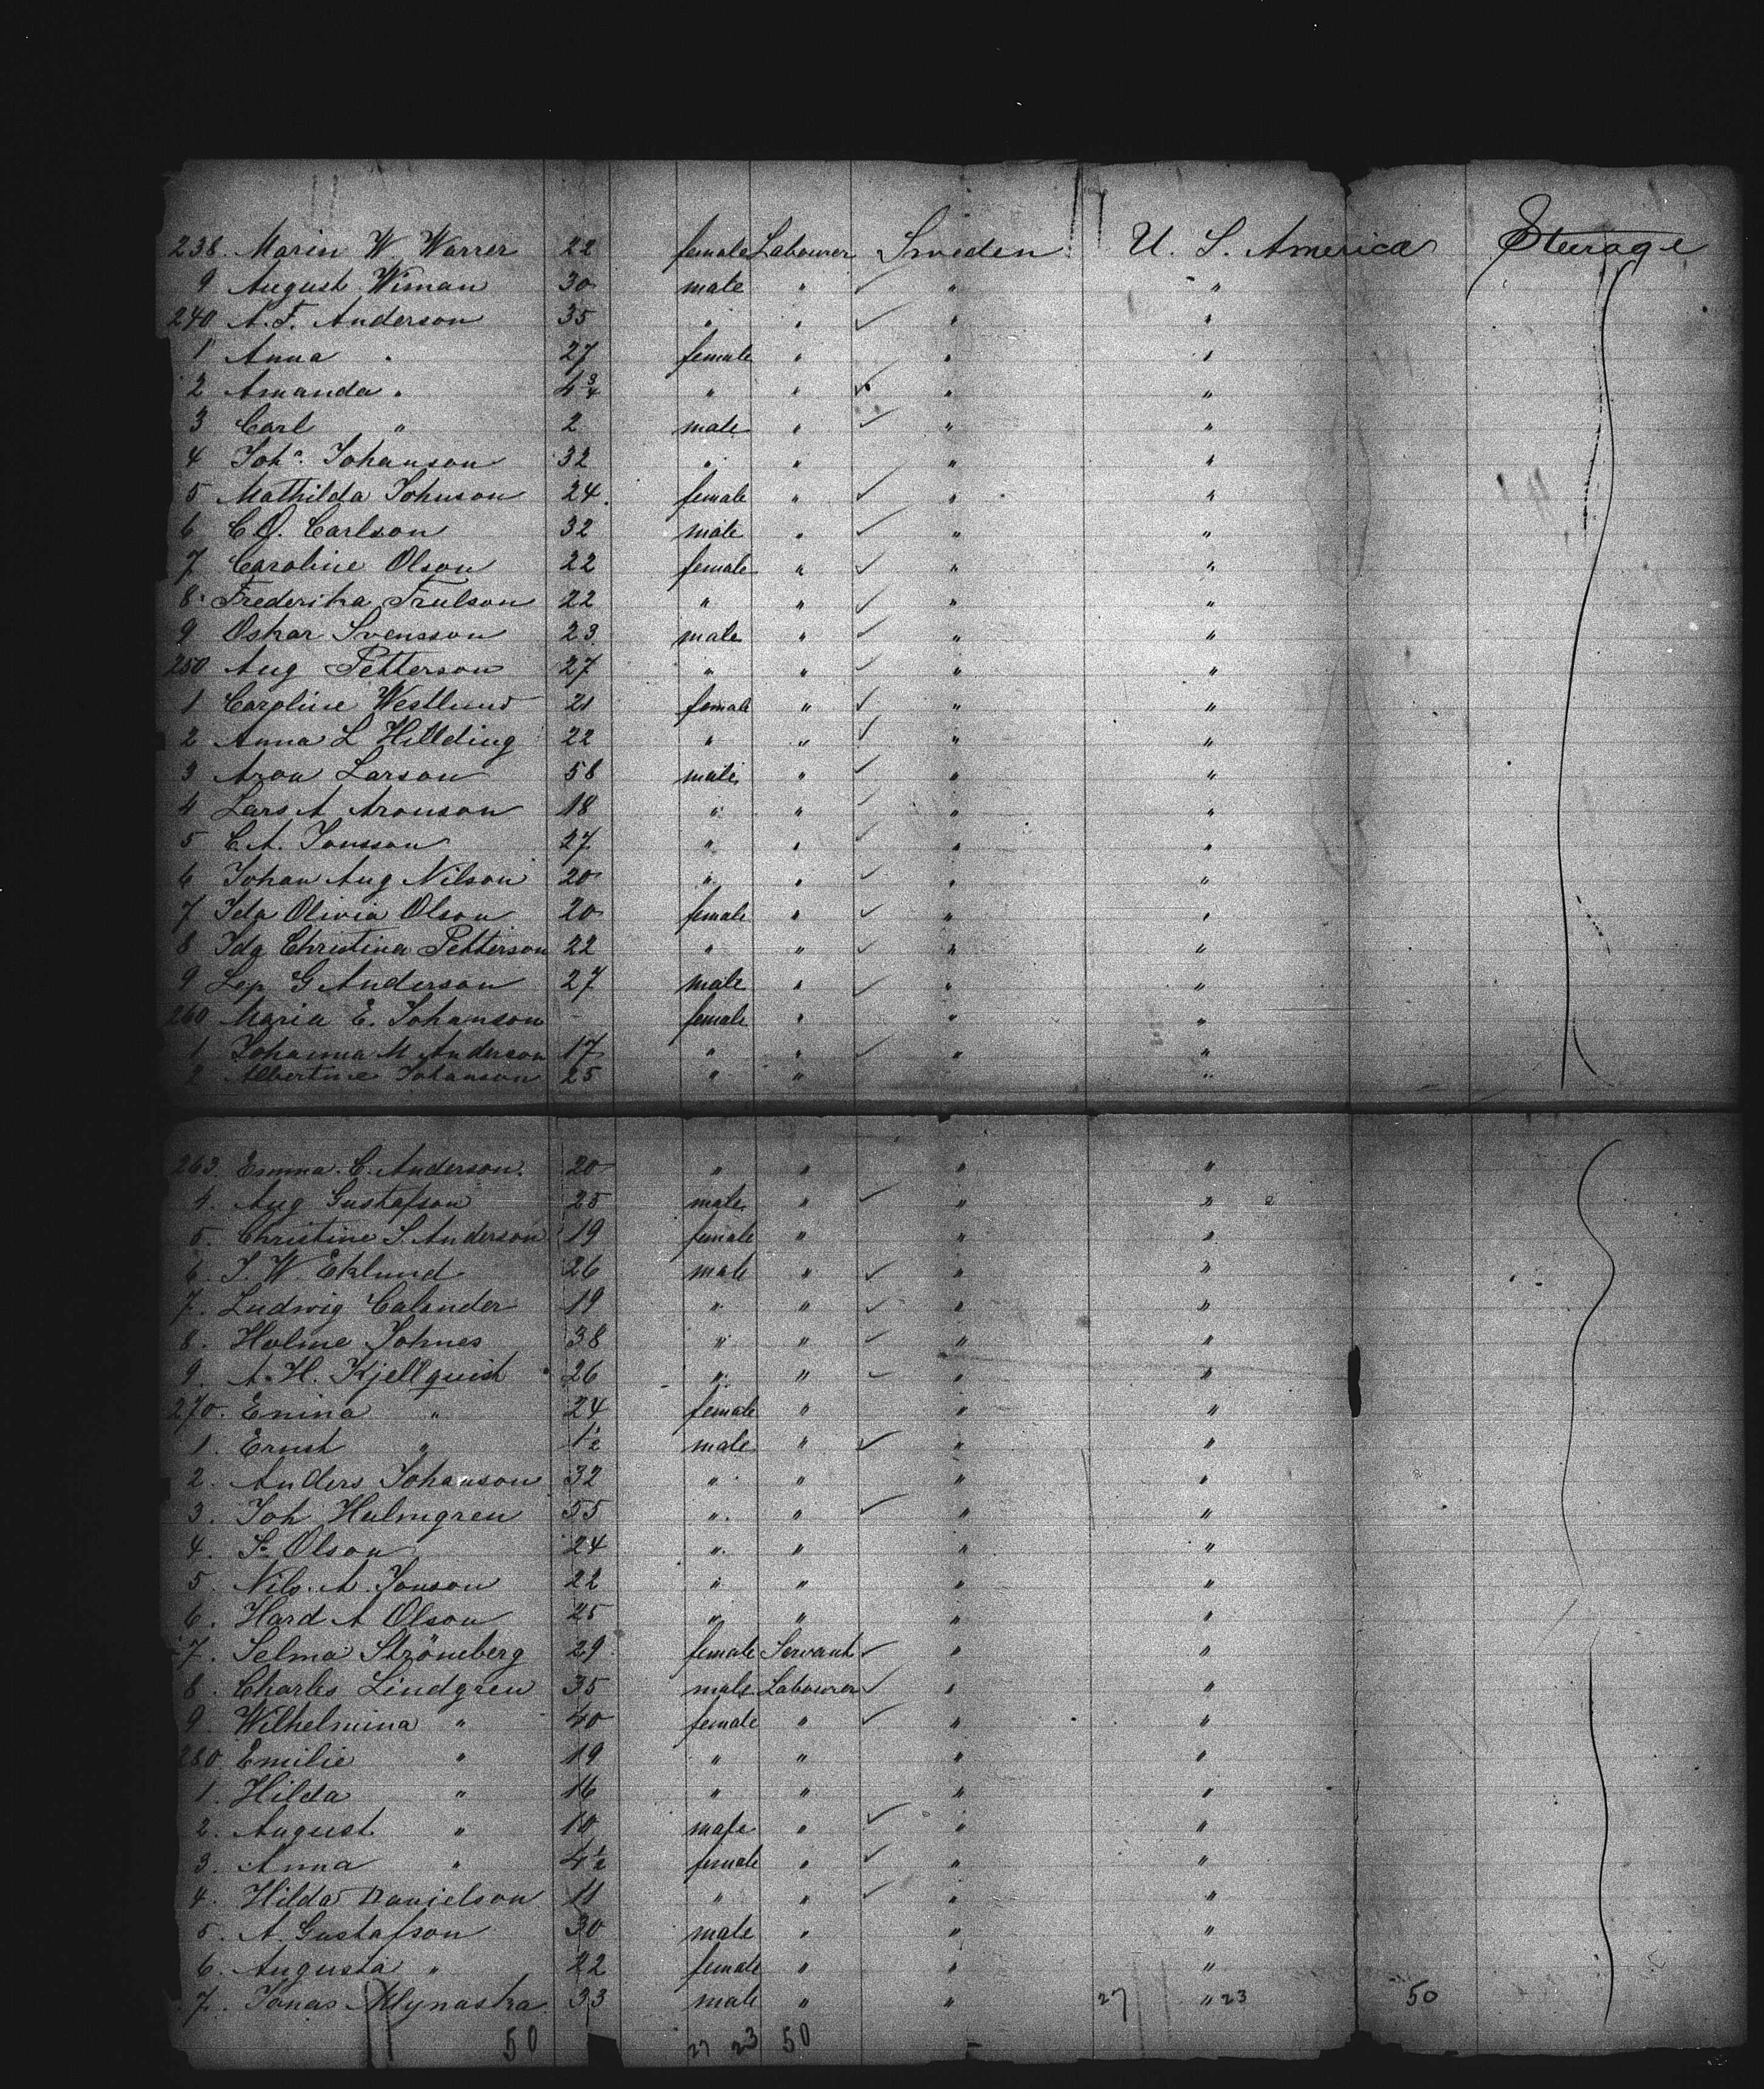 238. Marin W Warrer 22 female Labourer Sweden U. S. America Steerage
9 August Wiman 30 male " ✓ " "
240 A. F. Anderson 35 " " ✓ " "
1 Anna " 27 female " " "
2 Amanda " 4 3/4 " " ✓ " "
3 Carl " 2 male " ✓ " "
4 Joh. Johanson 32 " " " "
5 Mathilda Johnson 24. female " ✓ " "
6 C. O. Carlson 32 male " ✓ " "
7 Caroline Olson 22 female " ✓ " "
8. Frederika Trulson 22 " " ✓ " "
9 Oskar Svensson 23 male " ✓ " "
250 Aug Petterson 27 " " ✓ " "
1 Caroline Westlund 21 female " ✓ " "
2 Anna L Hillding 22 " " ✓ " "
3 Aron Larson 58 male " ✓ " "
4 Lars A Aronson 18 " " ✓ " "
5 C. A. Jonsson 27 " " ✓ " "
6 Johan Aug Nilson 20 " " ✓ " "
7 Ida Olivia Olson 20 female " ✓ " "
8 Ida Christina Petterson 22 " " ✓ " "
9 G Anderson 27 male " ✓ " "
260 Maria E. Johanson - female " " "
1 Johanna M Anderson 17 " " ✓ " "
2 Albertine Johanson 25 " " "
263. Emma. C. Anderson. 20 " " " "
4. Aug Gustafson 25 male " ✓ " "
5. Christine S. Anderson 19 female " " "
6. J. W. Eklund 26 male " ✓ " "
7. Ludwig Calander 19 " " ✓ " "
8. Holme Johnes 38 " " ✓ " "
9. A. H. Kjellquist 26 " " ✓ " "
270. Emina " 24 female " " "
1. Ernst " 1 1/2 male " ✓ " "
2. Anders Johanson 32 " " " "
3. Joh Holmgren 55 " " ✓ " "
4. S. Olson 24 " " " "
5. Nils. A. Jonson 22 " " " "
6. Hard A Olson 25 " " " "
7. Selma Strömberg 29 female Servant ✓ " "
8. Charles Lindgren 35 male Labourer ✓ " "
9 Wilhelmina " 40 female " ✓ " "
280 Emilie " 19 " " " "
1. Hilda " 16 " " " "
2. August " 10 male " ✓ " "
3. Anna " 4 1/2 female " ✓ " "
4. Hilda Danielson 11 " " ✓ " "
5. A. Gustafson 30 male " " "
6. Augusta " 22 female " " "
7. Jonas Mlynaska 33 male " " 27 " 23 50
50 27 23 50